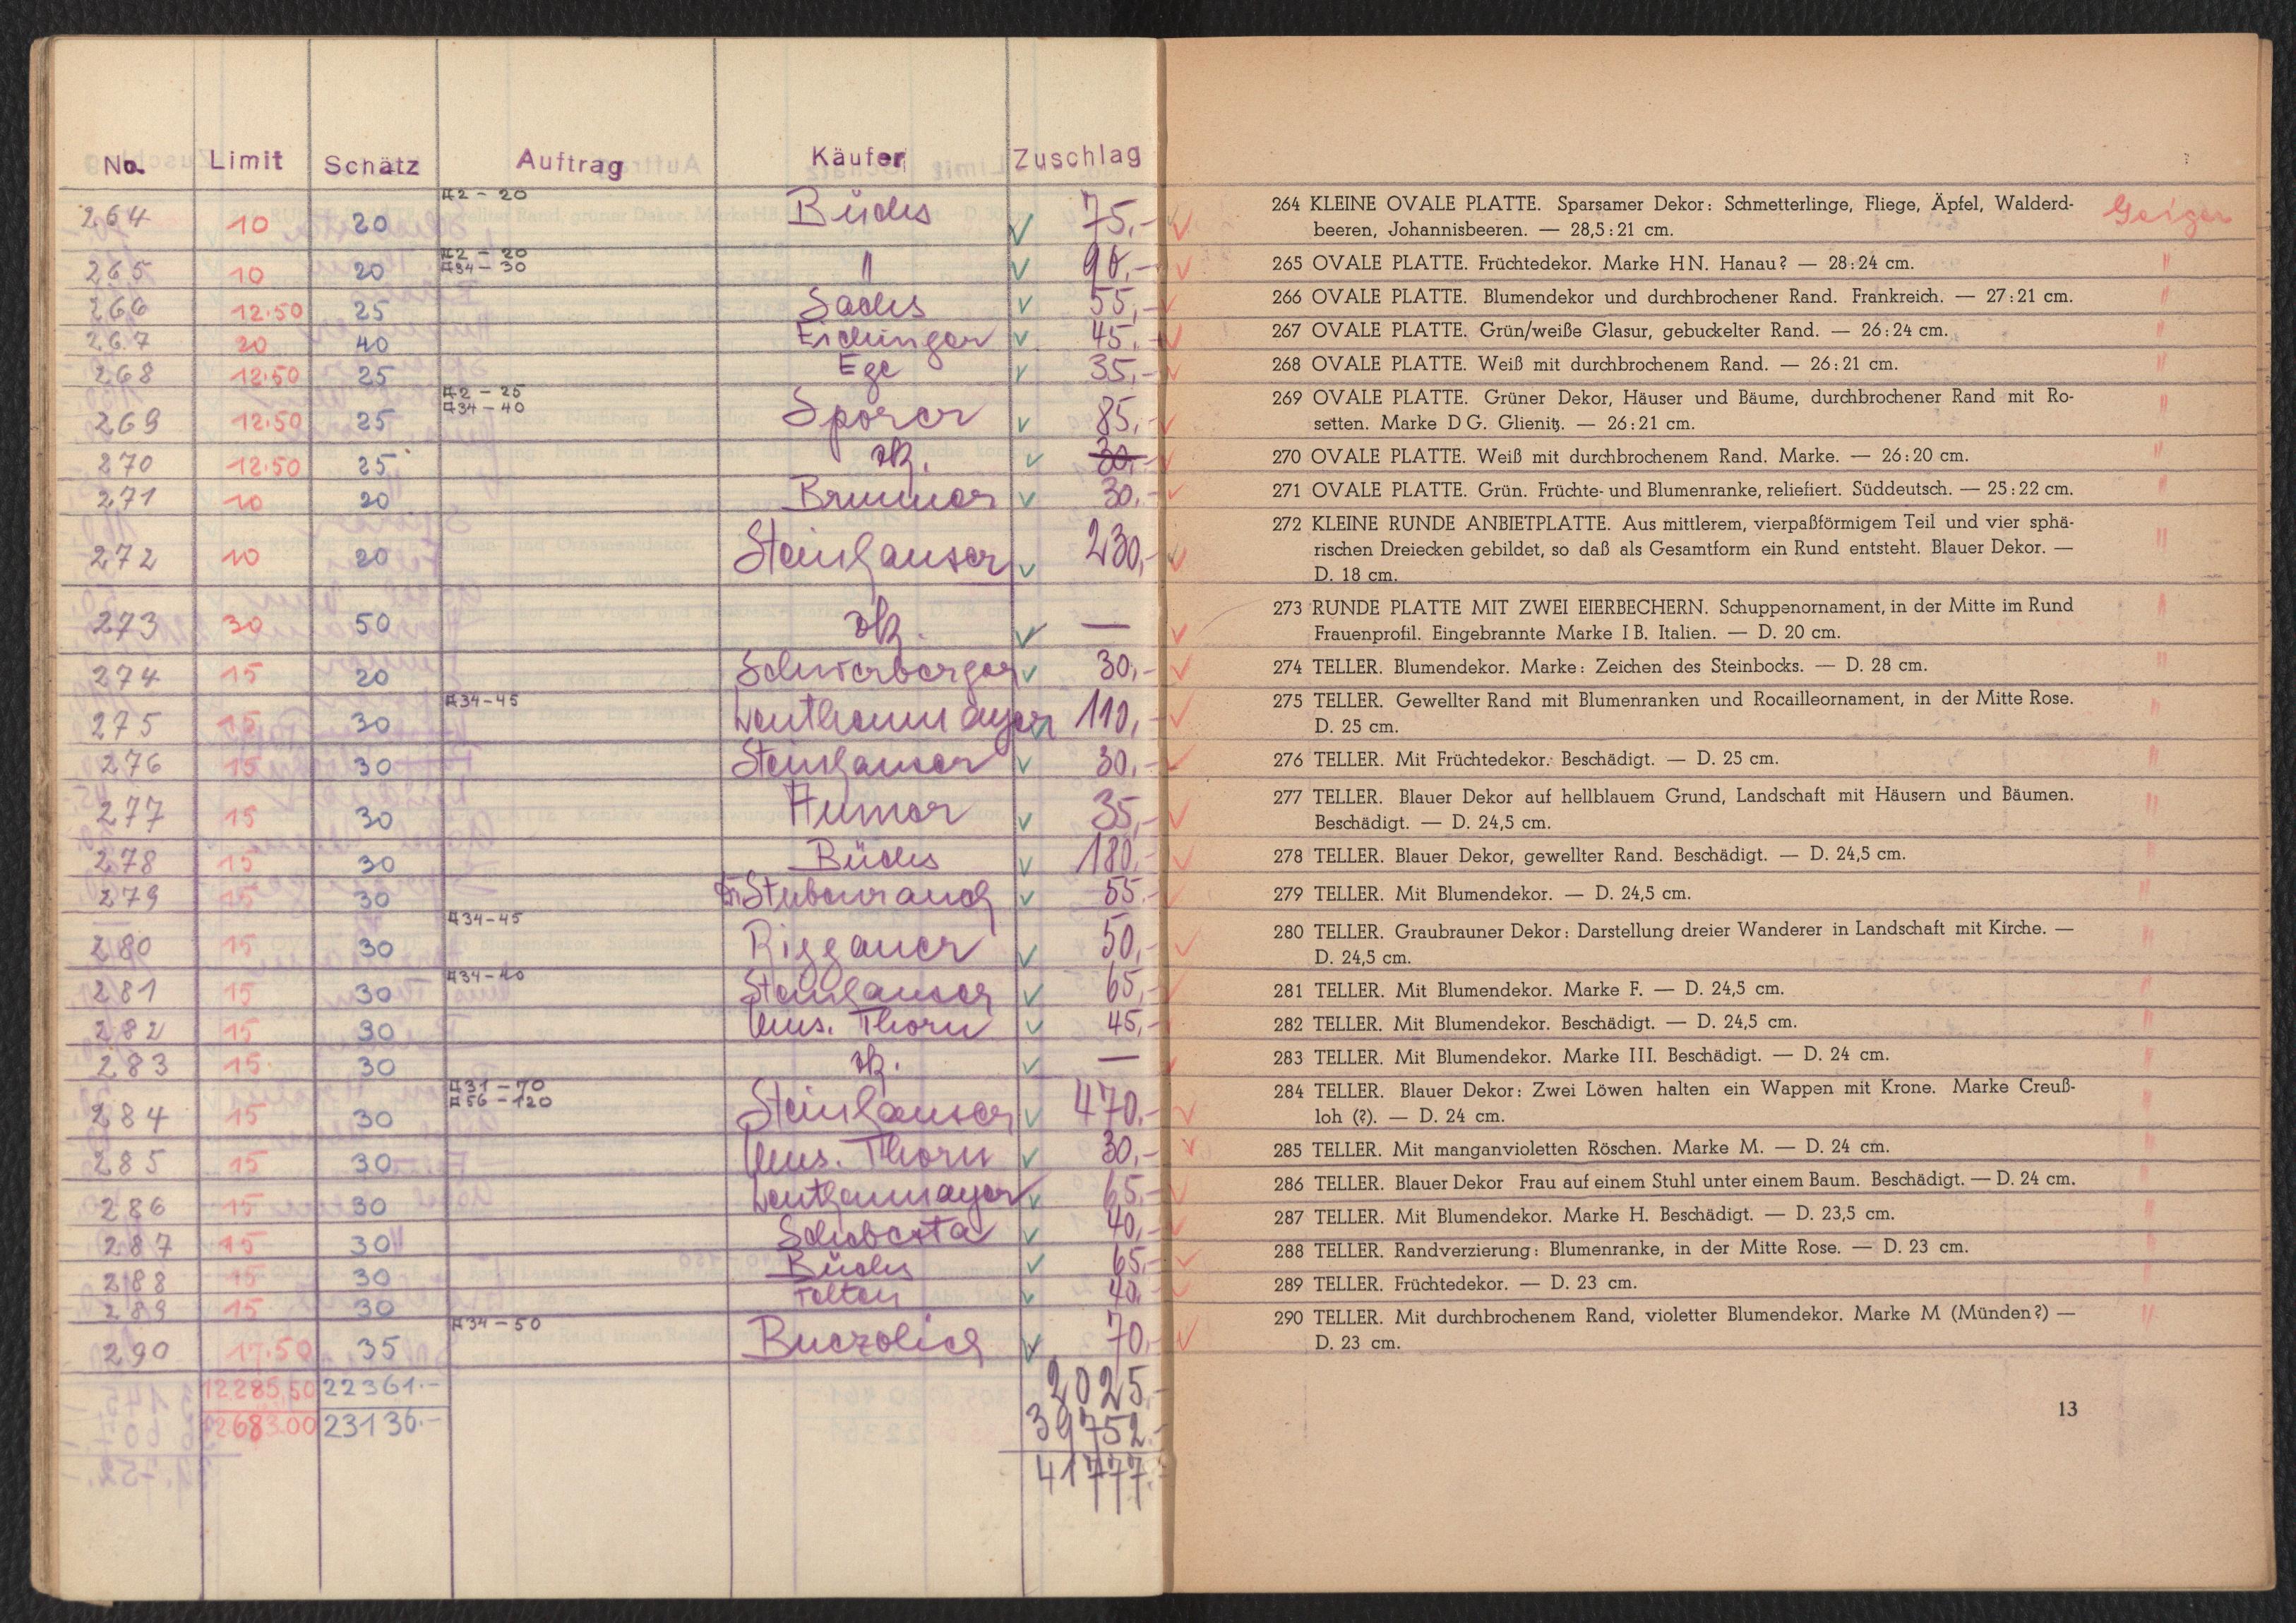 No. Limit Schätz Auftrag Käufer Zuschlag
2 - 20
264 10 20 Büchs 75,-
2 - 20
265 10 20 34 - 30 " 90,-
266 12.50 25 Sachs 55,-
267 20 40 Eichinger 45,-
268 12.50 25 Ege 35,-
2 - 25
269 12.50 25 34 - 40 Sporer 85,-
270 12.50 25 zk. 30,-
271 10 20 Brummer 30,-
272 10 20 Steinhauser 230,-
273 30 50 zk. —
274 15 20 Schwerberger 30,-
34-45
275 15 30 110,-
276 15 30 Steinhauser 30,-
277 15 30 Humar 35,-
278 15 30 Büchs 180,-
279 15 30 Stubenrauch 55.-
34-45
280 15 30 Riggauer 50,-
281 15 30 34-40 Steinhauser 65,-
282 15 30 Mus. Thorn 45,-
283 15 30 zk. —
31 - 70
284 15 30 56 - 120 Steinhauser 470.-
285 15 30 Mus. Thorn 30,-
286 15 30 65,-
287 15 30 Schebesta 40,-
288 15 30 Büchs 65,-
289 15 30 Felten 40,-
34 - 50
290 17.50 35 Buczolich 70,-
12285,50 22361.- 2025.-
12683.00 23136.- 39752.-
41777.-
264 KLEINE OVALE PLATTE. Sparsamer Dekor: Schmetterlinge, Fliege, Äpfel, Walderd- Geiger
beeren, Johannisbeeren. — 28,5 : 21 cm.
265 OVALE PLATTE. Früchtedekor. Marke HN. Hanau? — 28 : 24 cm. "
266 OVALE PLATTE. Blumendekor und durchbrochener Rand. Frankreich. — 27 : 21 cm. "
267 OVALE PLATTE. Grün/weiße Glasur, gebuckelter Rand. — 26 : 24 cm. "
268 OVALE PLATTE. Weiß mit durchbrochenem Rand. — 26 : 21 cm. "
269 OVALE PLATTE. Grüner Dekor, Häuser und Bäume, durchbrochener Rand mit Ro- "
setten. Marke DG. Glienitz. — 26 : 21 cm.
270 OVALE PLATTE. Weiß mit durchbrochenem Rand. Marke. — 26 : 20 cm. "
271 OVALE PLATTE. Grün. Früchte- und Blumenranke, reliefiert. Süddeutsch. — 25 : 22 cm. "
272 KLEINE RUNDE ANBIETPLATTE. Aus mittlerem, vierpaßförmigem Teil und vier sphä- "
rischen Dreiecken gebildet, so daß als Gesamtform ein Rund entsteht. Blauer Dekor. —
D. 18 cm.
273 RUNDE PLATTE MIT ZWEI EIERBECHERN. Schuppenornament, in der Mitte im Rund "
Frauenprofil. Eingebrannte Marke IB. Italien. — D. 20 cm.
274 TELLER. Blumendekor. Marke: Zeichen des Steinbocks. — D. 28 cm. "
275 TELLER. Gewellter Rand mit Blumenranken und Rocailleornament, in der Mitte Rose. "
D. 25 cm.
276 TELLER. Mit Früchtedekor. Beschädigt. — D. 25 cm. "
277 TELLER. Blauer Dekor auf hellblauem Grund, Landschaft mit Häusern und Bäumen. "
Beschädigt. — D. 24,5 cm.
278 TELLER. Blauer Dekor, gewellter Rand. Beschädigt. — D. 24,5 cm. "
279 TELLER. Mit Blumendekor. — D. 24,5 cm. "
280 TELLER. Graubrauner Dekor: Darstellung dreier Wanderer in Landschaft mit Kirche. — "
D. 24,5 cm.
281 TELLER. Mit Blumendekor. Marke F. — D. 24,5 cm. "
282 TELLER. Mit Blumendekor. Beschädigt. — D. 24,5 cm. "
283 TELLER. Mit Blumendekor. Marke III. Beschädigt. — D. 24 cm. "
284 TELLER. Blauer Dekor: Zwei Löwen halten ein Wappen mit Krone. Marke Creuß- "
loh (?). — D. 24 cm.
285 TELLER. Mit manganvioletten Röschen. Marke M. — D. 24 cm. "
286 TELLER. Blauer Dekor Frau auf einem Stuhl unter einem Baum. Beschädigt. — D. 24 cm. "
287 TELLER. Mit Blumendekor. Marke H. Beschädigt. — D. 23,5 cm. "
288 TELLER. Randverzierung: Blumenranke, in der Mitte Rose. — D. 23 cm. "
289 TELLER. Früchtedekor. — D. 23 cm. "
290 TELLER. Mit durchbrochenem Rand, violetter Blumendekor. Marke M (Münden?) — "
D. 23 cm.
13